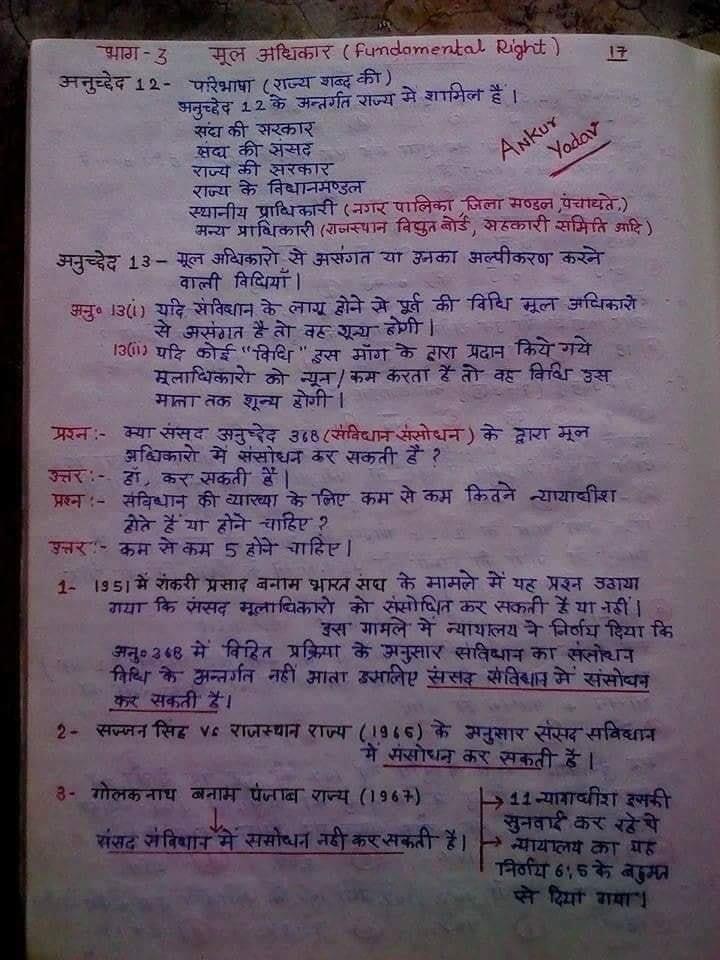 भाग - 3 मूल अधिकार (Fundamental Right) 17
अनुच्छेद 12 - परिभाषा (राज्य शब्द की)
अनुच्छेद 12 के अन्तर्गत राज्य मे शामिल है।
संघ की सरकार
संघ की संसद
राज्य की सरकार
राज्य के विधानमण्डल
स्थानीय प्राधिकारी (नगर पालिका, जिला मण्डल, पंचायते,)
अन्य प्राधिकारी (राजस्थान विद्युत बोर्ड, सहकारी समिति आदि)
Ankur
Yadav
अनुच्छेद 13 - मूल अधिकारो से असंगत या उनका अल्पीकरण करने
वाली विधियाँ।
अनु० 13(i) यदि संविधान के लागू होने से पूर्व की विधि मूल अधिकारो
से असंगत है तो वह शून्य होगी।
13(ii) यदि कोई "विधि" इस भाग के द्वारा प्रदान किये गये
मूलाधिकारो को न्यून / कम करता है तो वह विधि उस
मात्रा तक शून्य होगी।
प्रश्न :- क्या संसद अनुच्छेद 368 (संविधान संसोधन) के द्वारा मूल
अधिकारो में संसोधन कर सकती है ?
उत्तर :- हाँ, कर सकती है।
प्रश्न :- संविधान की व्याख्या के लिए कम से कम कितने न्यायाधीश
होते है या होने चाहिए ?
उत्तर :- कम से कम 5 होने चाहिए।
1- 1951 में शंकरी प्रसाद बनाम भारत संघ के मामले में यह प्रश्न उठाया
गया कि संसद मूलाधिकारो को संसोधित कर सकती है या नहीं।
इस मामले में न्यायालय ने निर्णय दिया कि
अनु० 368 में विहित प्रक्रिया के अनुसार संविधान का संसोधन
विधि के अन्तर्गत नहीं आता इसलिए संसद संविधान में संसोधन
कर सकती है।
2- सज्जन सिंह vs राजस्थान राज्य (1965) के अनुसार संसद संविधान
में संसोधन कर सकती है।
3- गोलकनाथ बनाम पंजाब राज्य (1967)
संसद संविधान में संसोधन नही कर सकती है।
→ 11 न्यायाधीश इसकी
सुनवाई कर रहे थे
→ न्यायालय का यह
निर्णय 6:5 के बहुमत
से दिया गया।